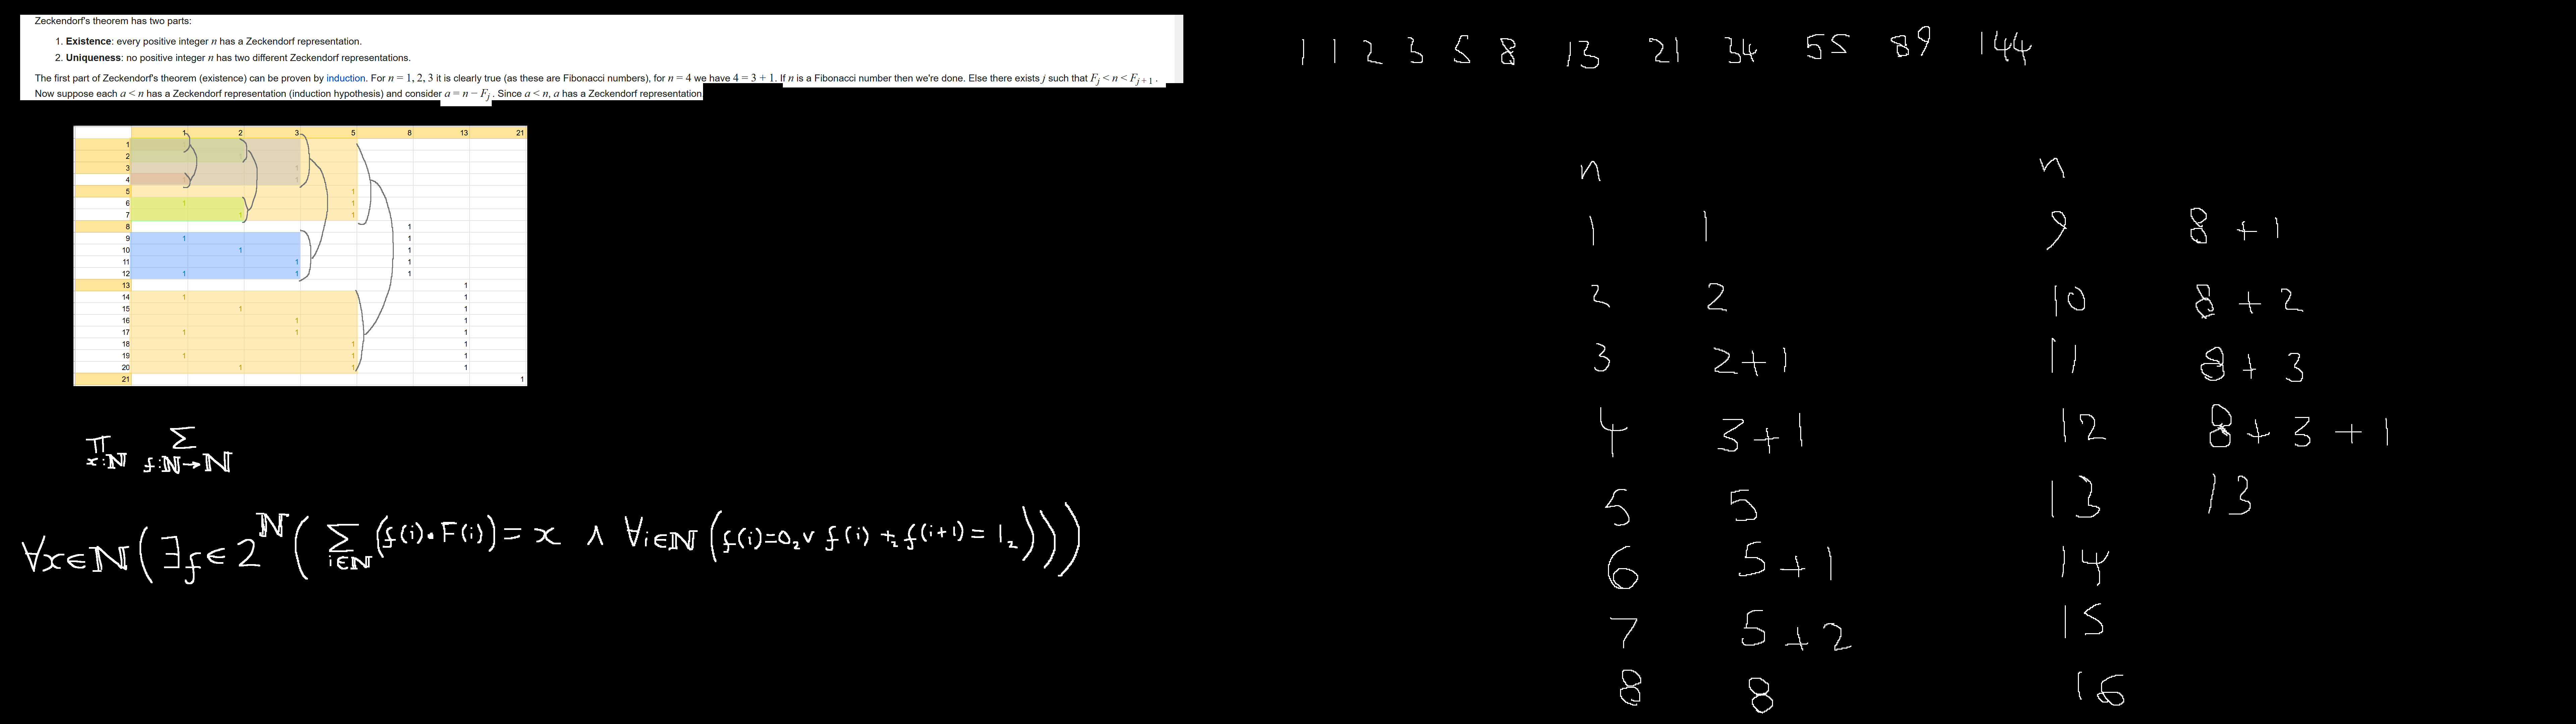 Zeckendorf's theorem has two parts:
1. Existence: every positive integer n has a Zeckendorf representation.
2. Uniqueness: no positive integer n has two different Zeckendorf representations.
The first part of Zeckendorf's theorem (existence) can be proven by induction. For n = 1, 2, 3 it is clearly true (as these are Fibonacci numbers), for n = 4 we have 4 = 3 + 1. If n is a Fibonacci number then we're done. Else there exists j such that F_j < n < F_{j+1}.
Now suppose each a < n has a Zeckendorf representation (induction hypothesis) and consider a = n − F_j. Since a < n, a has a Zeckendorf representation
1 2 3 5 8 13 21
1
2
3 1
4
5 1
6 1 1
7 1 1
8 1
9 1 1
10 1 1
11 1 1
12 1 1 1
13 1
14 1 1
15 1 1
16 1 1
17 1 1 1
18 1 1
19 1 1 1
20 1 1 1
21 1
Π x:ℕ Σ f:ℕ→ℕ
∀x∈ℕ(∃f∈2^ℕ(Σ_{i∈ℕ}(f(i)·F(i)) = x ∧ ∀i∈ℕ(f(i)=0₂ ∨ f(i) +₂ f(i+1) = 1₂)))
1 1 2 3 5 8 13 21 34 55 89 144
n
1 1
2 2
3 2+1
4 3+1
5 5
6 5+1
7 5+2
8 8
n
9 8+1
10 8+2
11 8+3
12 8+3+1
13 13
14
15
16